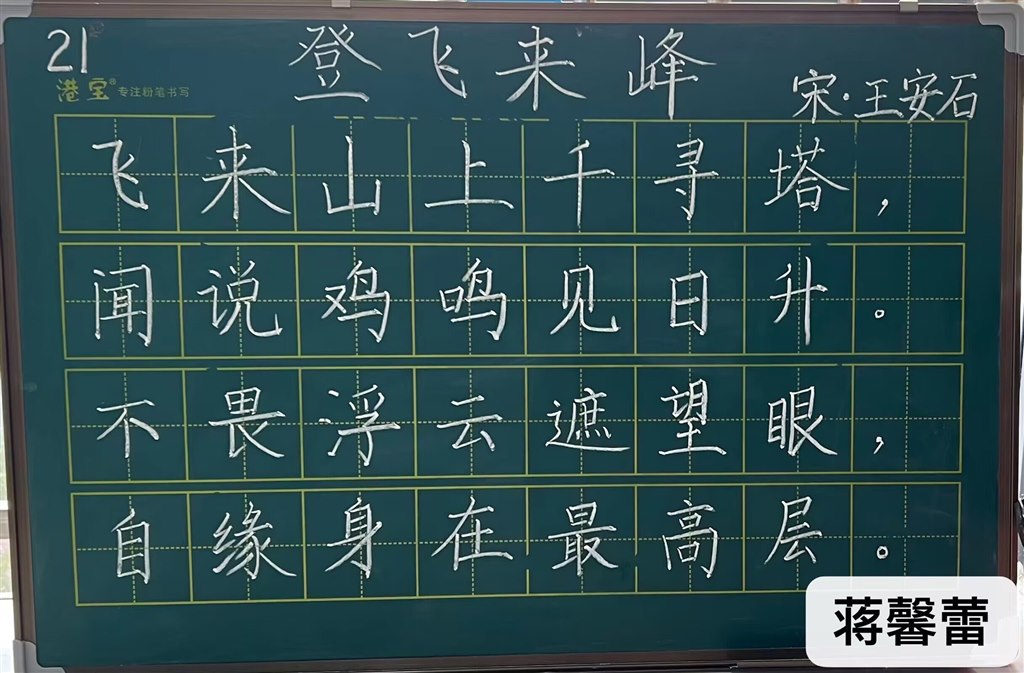 21
港宝® 专注粉笔书写
登飞来峰
宋·王安石
飞来山上千寻塔，
闻说鸡鸣见日升。
不畏浮云遮望眼，
自缘身在最高层。
蒋馨蕾